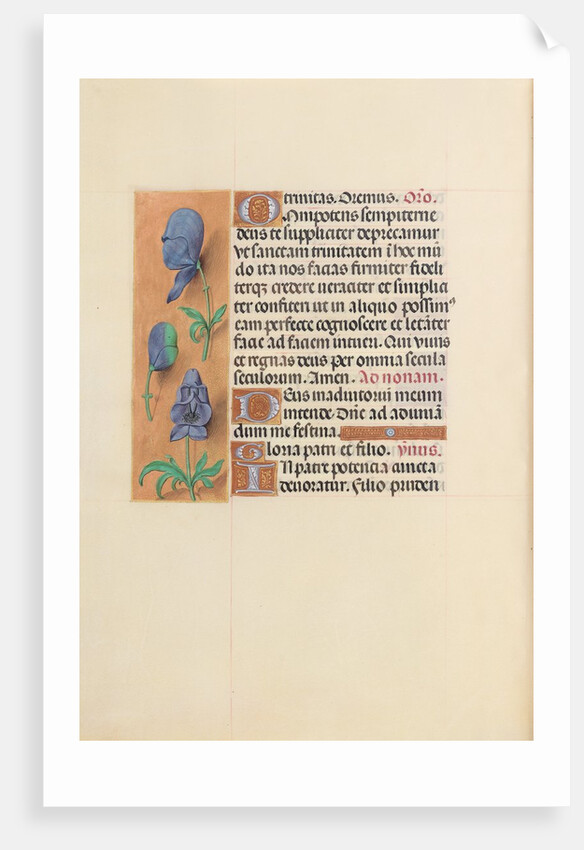 trinitas. Oremus. Oro.
Omnipotens sempiterne
deus te suppliciter deprecamur
vt sanctam trinitatem i hoc mu
do ita nos facias firmiter fideli
terqz credere ueraciter et simplici
ter confiteri ut in aliquo possim9
eam perfecte cognoscere et letater
facie ad faciem intueri. Qui viuis
et regnas deus per omnia secula
seculorum. Amen. Ad nonam.
Deus in adiutorium meum
intende. Dne ad adiuua
dum me festina.
Gloria patri et filio. ymnus.
In patre potencia cuncta
denoratur. Filio pruden